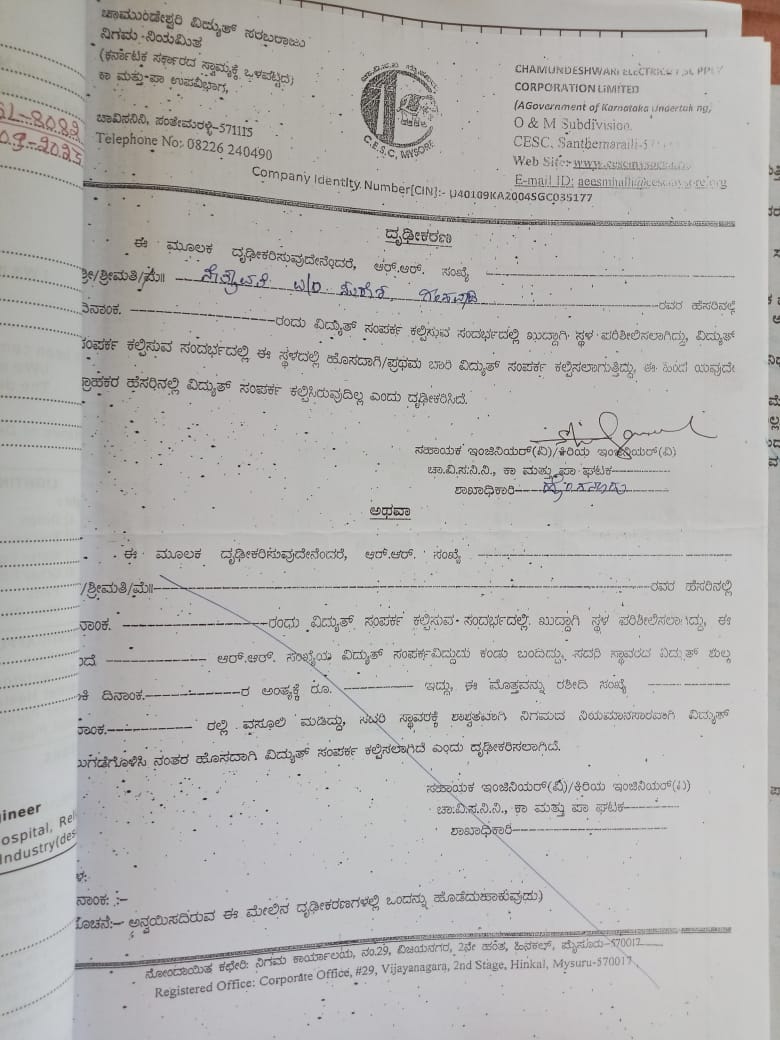 ಚಾಮುಂಡೇಶ್ವರಿ ವಿದ್ಯುತ್ ಸರಬರಾಜು
ನಿಗಮ ನಿಯಮಿತ
(ಕರ್ನಾಟಕ ಸರ್ಕಾರದ ಸ್ವಾಮ್ಯಕ್ಕೆ ಒಳಪಟ್ಟಿದೆ)
ಕಾ ಮತ್ತು ಪಾ ಉಪವಿಭಾಗ,
ಚಾವಿಸನಿನಿ, ಸಂತೇಮರಳ್ಳಿ-571115
Telephone No: 08226 240490
C.E.S.C, MYSORE
CHAMUNDESHWARI ELECTRICITY SUPPLY
CORPORATION LIMITED
(AGovernment of Karnataka Undertaking)
O & M Subdivision,
CESC, Santhemaralli-5
Web Site:- www.cescmysore.org
E-mail ID: aeesmhalli@cescmysore.org
Company Identity Number[CIN]:- U40109KA2004SGC035177
ದೃಢೀಕರಣ
ಈ ಮೂಲಕ ದೃಢೀಕರಿಸುವುದೇನೆಂದರೆ, ಆರ್.ಆರ್. ಸಂಖ್ಯೆ
ಶ್ರೀ/ಶ್ರೀಮತಿ/ಮೆ॥ ರವರ ಹೆಸರಿನಲ್ಲಿ
ದಿನಾಂಕ. ರಂದು ವಿದ್ಯುತ್ ಸಂಪರ್ಕ ಕಲ್ಪಿಸುವ ಸಂದರ್ಭದಲ್ಲಿ ಖುದ್ದಾಗಿ ಸ್ಥಳ ಪರಿಶೀಲಿಸಲಾಗಿದ್ದು, ವಿದ್ಯುತ್
ಸಂಪರ್ಕ ಕಲ್ಪಿಸುವ ಸಂದರ್ಭದಲ್ಲಿ ಈ ಸ್ಥಳದಲ್ಲಿ ಹೊಸದಾಗಿ/ಪ್ರಥಮ ಬಾರಿ ವಿದ್ಯುತ್ ಸಂಪರ್ಕ ಕಲ್ಪಿಸಲಾಗುತ್ತಿದ್ದು, ಈ ಹಿಂದೆ ಯಾವುದೇ
ಗ್ರಾಹಕರ ಹೆಸರಿನಲ್ಲಿ ವಿದ್ಯುತ್ ಸಂಪರ್ಕ ಕಲ್ಪಿಸಿರುವುದಿಲ್ಲ ಎಂದು ದೃಢೀಕರಿಸಿದೆ.
ಸಹಾಯಕ ಇಂಜಿನಿಯರ್(ವಿ)/ಕಿರಿಯ ಇಂಜಿನಿಯರ್(ವಿ)
ಚಾ.ವಿ.ಸ.ನಿ.ನಿ., ಕಾ ಮತ್ತು ಪಾ ಘಟಕ
ಶಾಖಾಧಿಕಾರಿ
ಅಥವಾ
ಈ ಮೂಲಕ ದೃಢೀಕರಿಸುವುದೇನೆಂದರೆ, ಆರ್.ಆರ್. ಸಂಖ್ಯೆ
/ಶ್ರೀಮತಿ/ಮೆ॥ ರವರ ಹೆಸರಿನಲ್ಲಿ
ನಾಂಕ. ರಂದು ವಿದ್ಯುತ್ ಸಂಪರ್ಕ ಕಲ್ಪಿಸುವ ಸಂದರ್ಭದಲ್ಲಿ ಖುದ್ದಾಗಿ ಸ್ಥಳ ಪರಿಶೀಲಿಸಲಾಗಿದ್ದು, ಈ
ಆರ್.ಆರ್. ಸಂಖ್ಯೆಯ ವಿದ್ಯುತ್ ಸಂಪರ್ಕವಿದ್ದುದು ಕಂಡು ಬಂದಿದ್ದು, ಸದರಿ ಸ್ಥಾವರದ ವಿದ್ಯುತ್ ಶುಲ್ಕ
ಕಿ ದಿನಾಂಕ. ರ ಅಂತ್ಯಕ್ಕೆ ರೂ. ಇದ್ದು, ಈ ಮೊತ್ತವನ್ನು ರಶೀದಿ ಸಂಖ್ಯೆ
ನಾಂಕ. ರಲ್ಲಿ ವಸೂಲಿ ಮಾಡಿದ್ದು, ಸದರಿ ಸ್ಥಾವರಕ್ಕೆ ಶಾಶ್ವತವಾಗಿ ನಿಗಮದ ನಿಯಮಾನುಸಾರವಾಗಿ ವಿದ್ಯುತ್
ುಗಡೆಗೊಳಿಸಿ ನಂತರ ಹೊಸದಾಗಿ ವಿದ್ಯುತ್ ಸಂಪರ್ಕ ಕಲ್ಪಿಸಲಾಗಿದೆ ಎಂದು ದೃಢೀಕರಿಸಲಾಗಿದೆ.
ಸಹಾಯಕ ಇಂಜಿನಿಯರ್(ವಿ)/ಕಿರಿಯ ಇಂಜಿನಿಯರ್(ವಿ)
ಚಾ.ವಿ.ಸ.ನಿ.ನಿ., ಕಾ ಮತ್ತು ಪಾ ಘಟಕ
ಶಾಖಾಧಿಕಾರಿ
ಳ:
ನಾಂಕ: :-
ೂಚನೆ:- ಅನ್ವಯಿಸದಿರುವ ಈ ಮೇಲಿನ ದೃಢೀಕರಣಗಳಲ್ಲಿ ಒಂದನ್ನು ಹೊಡೆದುಹಾಕುವುದು)
ನೋಂದಾಯಿತ ಕಛೇರಿ: ನಿಗಮ ಕಾರ್ಯಾಲಯ, ನಂ.29, ವಿಜಯನಗರ, 2ನೇ ಹಂತ, ಹಿನಕಲ್, ಮೈಸೂರು-570017
Registered Office: Corporate Office, #29, Vijayanagara, 2nd Stage, Hinkal, Mysuru-570017
gineer
ospital, Rel
Industry(des